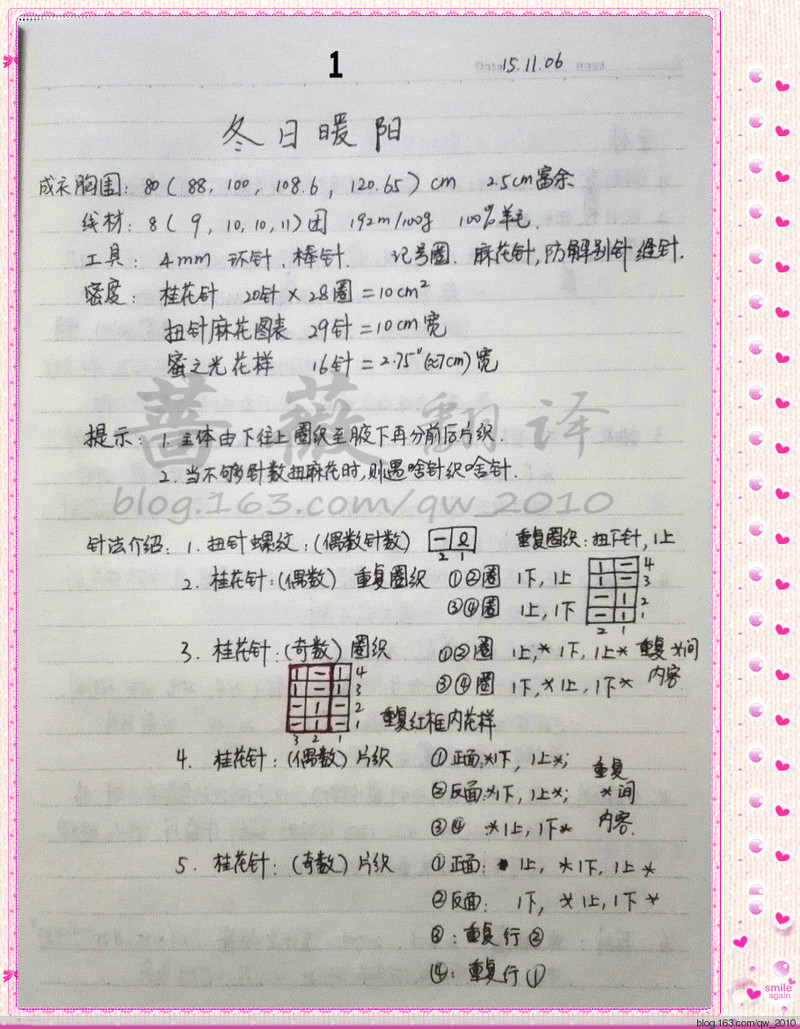 1
15.11.06
冬日暖阳
成衣胸围: 80 ( 88, 100, 108.6, 120.65) cm 2.5cm富余
线材: 8 ( 9, 10, 10, 11) 团 192m/100g 100%羊毛.
工具: 4mm 环针、棒针. 记号圈. 麻花针, 防解别针 缝针.
密度: 桂花针 20针×28圈=10cm²
扭针麻花图表 29针=10cm宽
蜜之光花样 16针=2.75"(≈7cm)宽
蔷薇翻译
提示: 1. 主体由下往上圈织至腋下再分前后片织.
2. 当不够针数扭麻花时, 则遇啥针织啥针.
blog.163.com/qw_2010
针法介绍: 1. 扭针螺纹: (偶数针数) 一 Ω 重复圈织: 扭下针, 1上
2 1
2. 桂花针: (偶数) 重复圈织 ①②圈 1下, 1上
③④圈 1上, 1下
4
3
2
1
2 1
3. 桂花针: (奇数) 圈织 ①②圈 1上, *1下, 1上* 重复*间
③④圈 1下, *1上, 1下* 内容.
4
3
2
1
3 2 1
重复红框内花样
4. 桂花针: (偶数) 片织 ①正面:*1下, 1上*; 重复
②反面:*1下, 1上*; *间
③④ *1上, 1下* 内容.
5. 桂花针: (奇数) 片织 ①正面: 1上, *1下, 1上*
②反面: 1下, *1上, 1下*
③: 重复行②
④: 重复行①
smile
again
blog.163.com/qw_2010